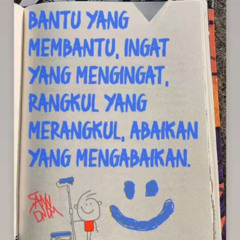 BANTU YANG
MEMBANTU, INGAT
YANG MENGINGAT,
RANGKUL YANG
MERANGKUL, ABAIKAN
YANG MENGABAIKAN.